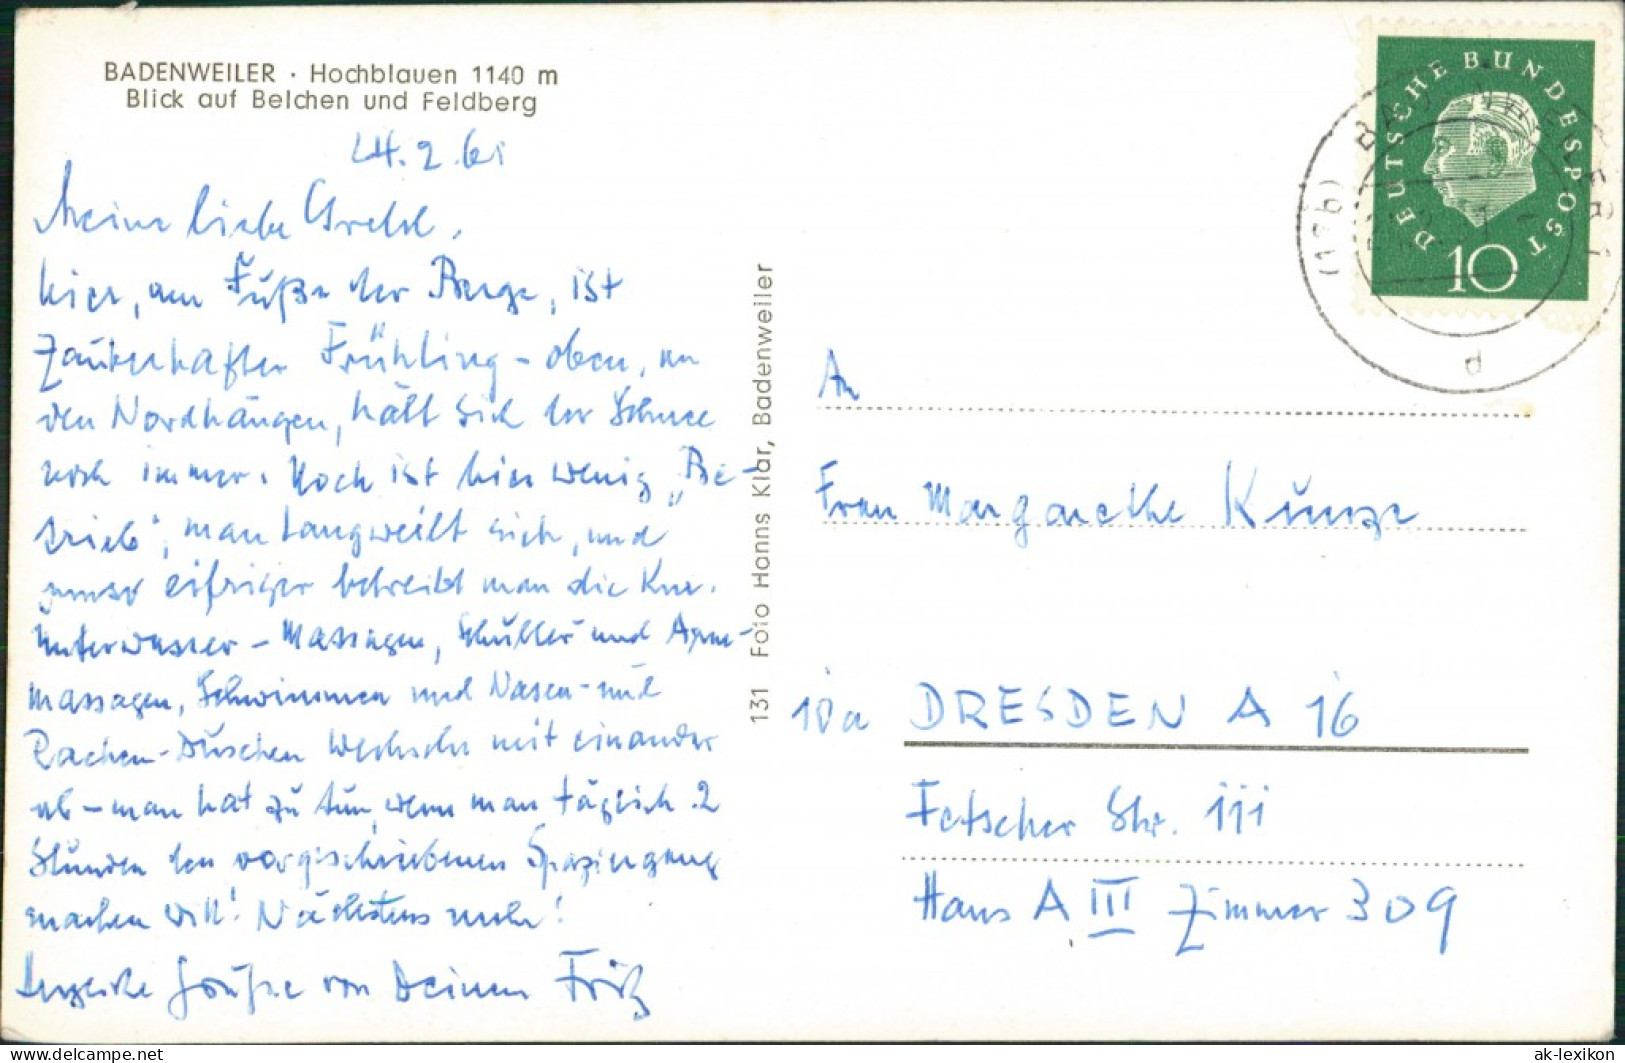 BADENWEILER · Hochblauen 1140 m
Blick auf Belchen und Feldberg
24.2.61
Meine liebe Gretel,
hier, am Fuße der Berge, ist
zauberhafter Frühling - oben, an
den Nordhängen, hält sich der Schnee
noch immer. Noch ist hier wenig „Be-
trieb“, man langweilt sich, und
umso eifriger betreibt man die Kur.
Unterwasser-Massagen, und
massagen, Schwimmen und Nasen- und
Rachen-Duschen wechseln mit einander
ab - man hat zu tun, wenn man täglich 2
Stunden den vorgeschriebenen Spaziergang
machen will! Nächstens mehr!
Herzliche Grüße von Deinem Fritz
131 Foto Hanns Klar, Badenweiler
DEUTSCHE BUNDESPOST
10
(17b) BADENWEILER 1
d
An
Frau Margarethe Kunze
10a DRESDEN A 16
Fetscher Str. 111
Haus A III Zimmer 309
hkpostcards.delcampe.net
ak-lexikon